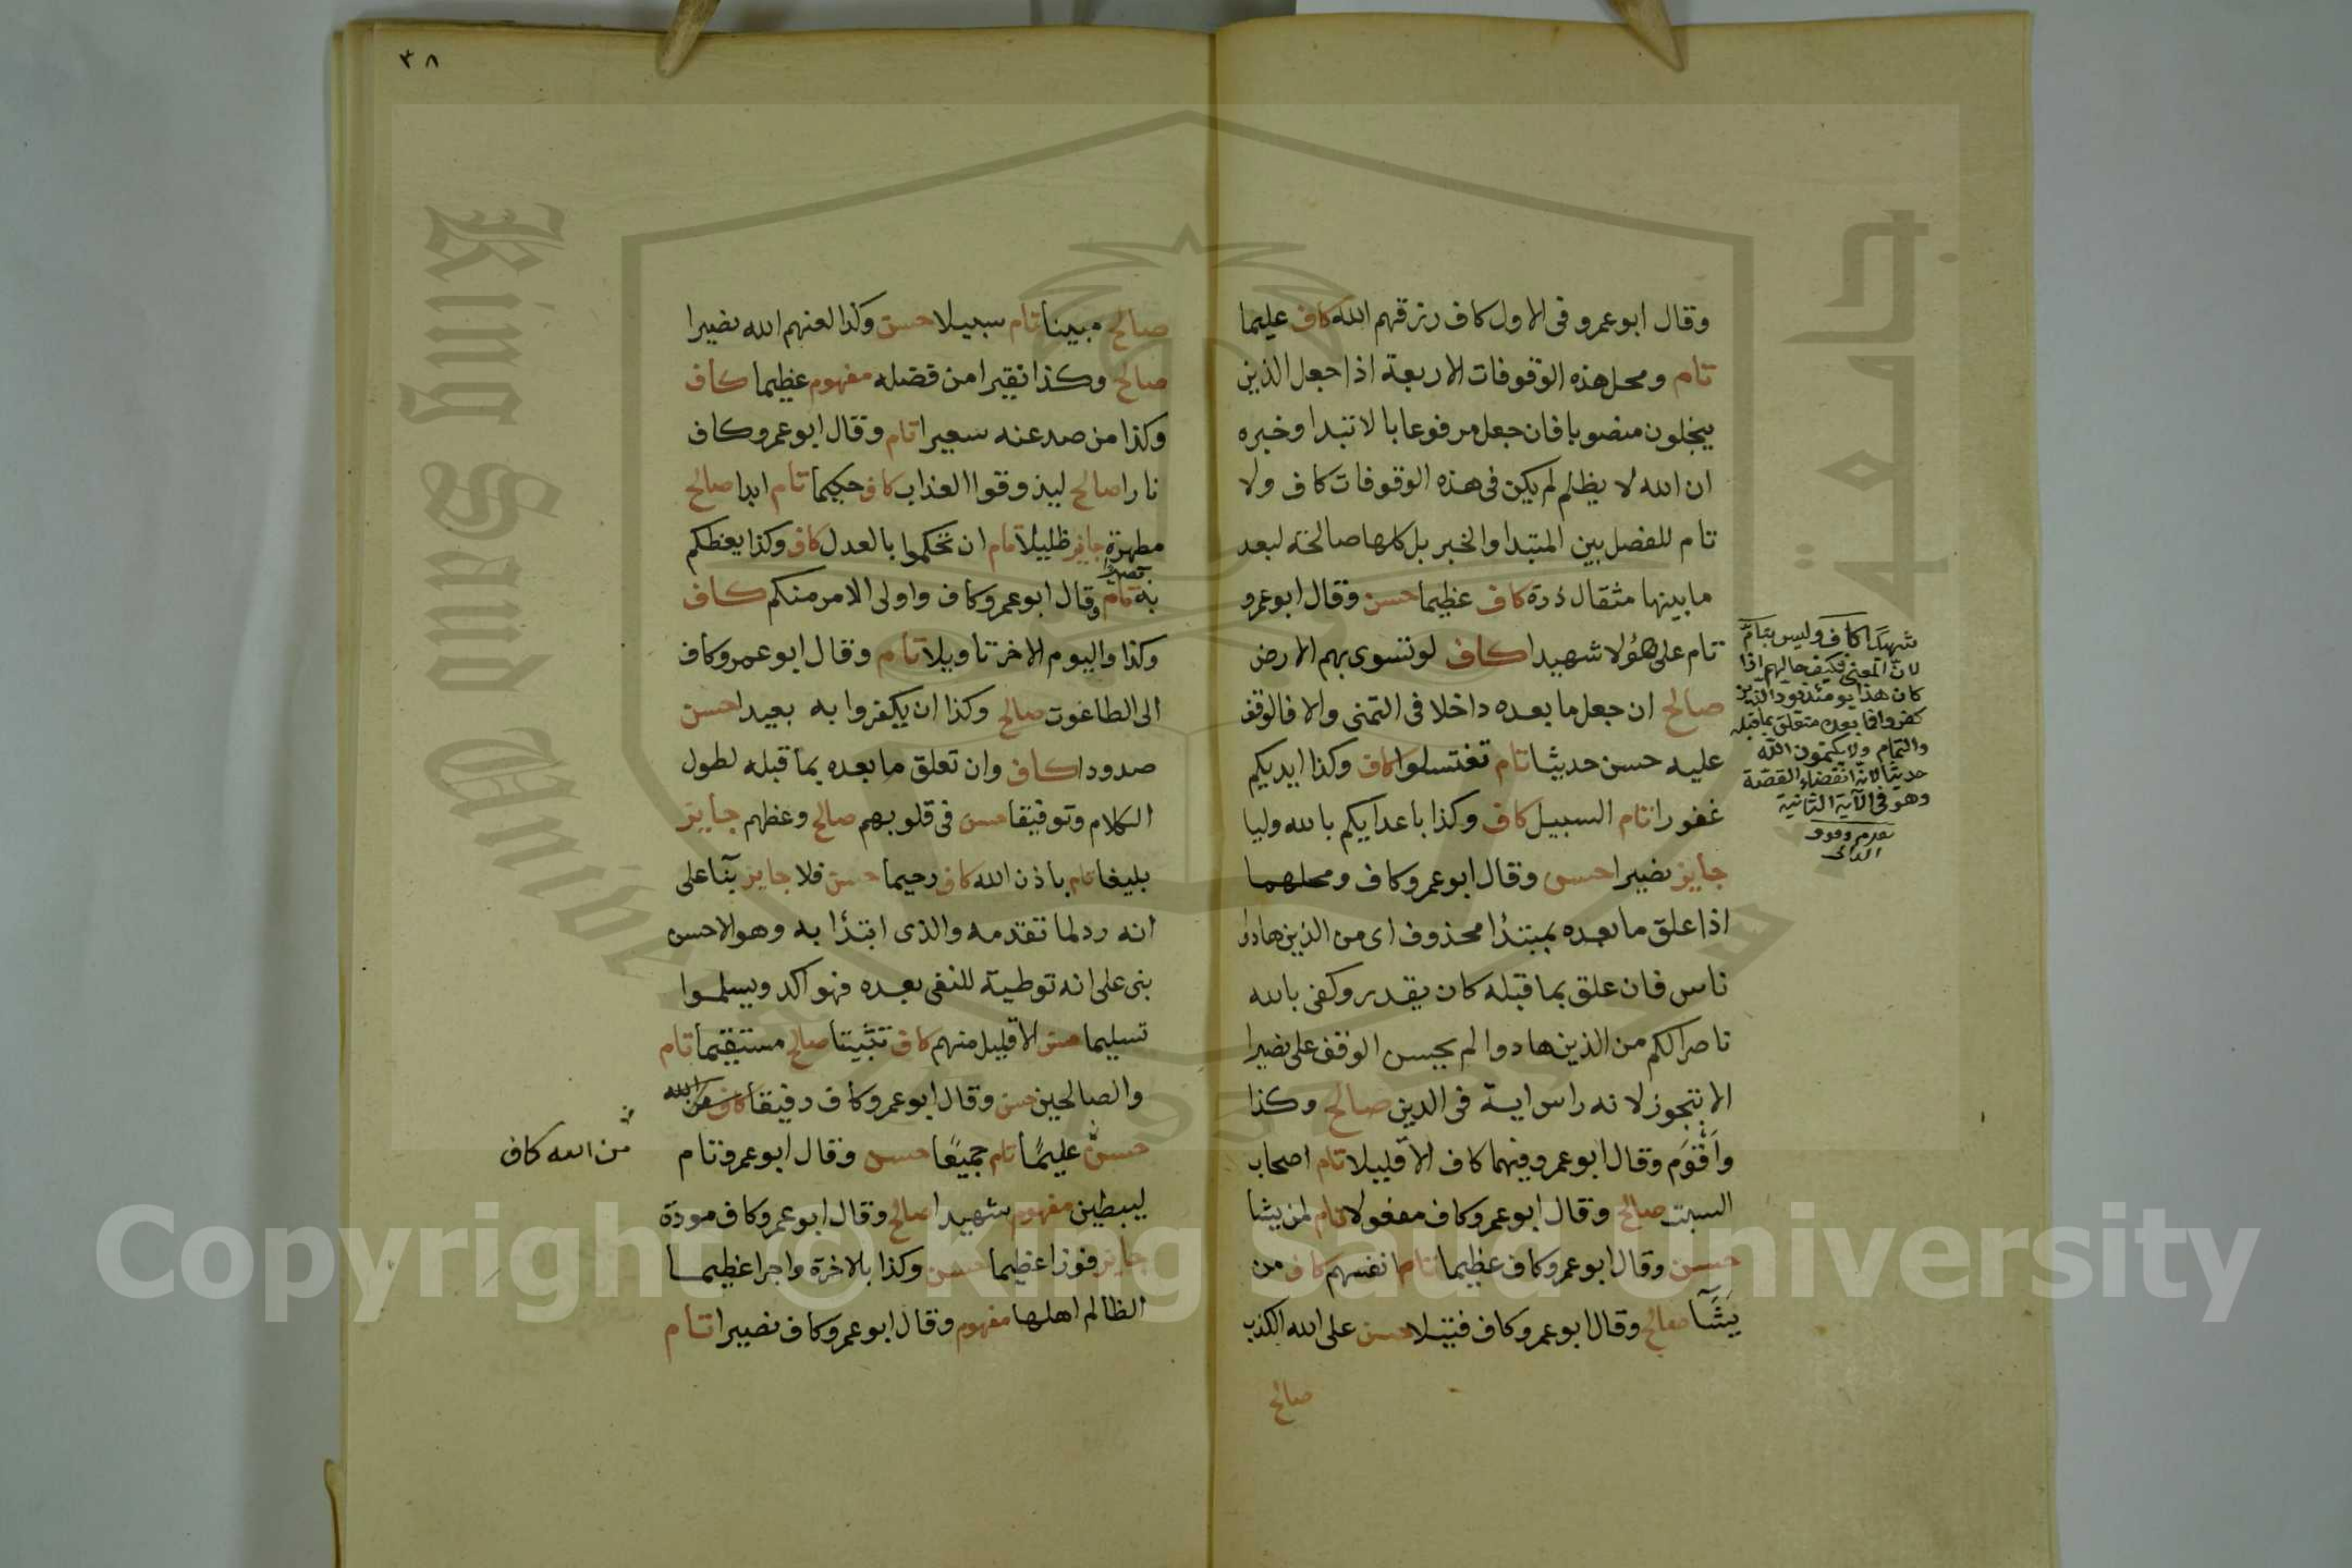 وقال ابو عمرو فى الاول كاف رزقهم الله كاف عليما
تام ومحل هذه الوقوفات الاربعة اذا جعل الذين
يبخلون منصوبا فان جعل مرفوعا بالابتدا وخبره
ان الله لا يظلم لم يكن فى هذه الوقوفات كاف ولا
تام للفصل بين المبتدا والخبر بل كلها صالحة لبعد
ما بينها مثقال ذرة كاف عظيما حسن وقال ابو عمرو
تام على هؤلا شهيدا كاف لو تسوى بهم الارض
صالح ان جعل ما بعده داخلا فى التمنى والا فالوقف
عليه حسن حديثا تام تغتسلوا كاف وكذا ايديكم
غفورا تام السبيل كاف وكذا باعدايكم بالله وليا
جايز نصيرا حسن وقال ابو عمرو كاف ومحلهما
اذا علق ما بعده بمبتدا محذوف اى من الذين هادوا
ناس فان علق بما قبله كان يقدر وكفى بالله
ناصرا لكم من الذين هادوا لم يحسن الوقف على نصيرا
الا بتجوز لانه راس اية فى الدين صالح وكذا
وَأَقْوَم وقال ابو عمرو فيهما كاف الا قليلا تام اصحاب
السبت صالح وقال ابو عمرو كاف مفعولا تام لمن يشا
حسن وقال ابو عمرو كاف عظيما تام انفسهم كاف من
يَشَآ صالح وقال ابو عمرو كاف فتيلا حسن على الله الكذب
صالح
شهيدًا كاف وليس بتام
لان المعنى فكيف حالهم اذا
كان هذا يومئذ يود الذين
كفروا فما بعده متعلق بما قبله
والتمام ولا يكتمون الله
حديثا لانه انقضاء القصة
وهو فى الآية الثانية
الدانى
٣٨
صالح مبينا تام سبيلا حسن وكذا لعنهم الله نصيرا
صالح وكذا نقيرا من فضله مفهوم عظيما كاف
وكذا من صد عنه سعيرا تام وقال ابو عمرو كاف
نارا صالح ليذوقوا العذاب كاف حكيما تام ابدا صالح
مطهرة جايز ظليلا تام ان تحكموا بالعدل كاف وكذا يعظكم
به بصيرا تام وقال ابو عمرو كاف واولى الامر منكم كاف
وكذا واليوم الاخر تاويلا تام وقال ابو عمرو كاف
الى الطاغوت صالح وكذا ان يكفروا به بعيدا حسن
صدودا كاف وان تعلق ما بعده بما قبله لطول
الكلام وتوفيقا حسن فى قلوبهم صالح وعظهم جايز
بليغا تام باذن الله كاف رحيما حسن فلا جايز بنآ على
انه رد لما تقدمه والذى ابتدا به وهو الاحسن
بنى على انه توطية للنفى بعده فهو اكد ويسلموا
تسليما حسن الا قليل منهم كاف تثبيتا صالح مستقيما تام
والصالحين حسن وقال ابو عمرو كاف رفيقا كاف من الله
حسن عليمًا تام جميعًا حسن وقال ابو عمرو تام
ليبطين مفهوم شهيدا صالح وقال ابو عمرو كاف مودة
جايز فوزا عظيما حسن وكذا بالاخرة واجرا عظيما
الظالم اهلها مفهوم وقال ابو عمرو كاف نصيرا تام
من الله كاف
King Saud University
جامعة
1957
Copyright © King Saud University